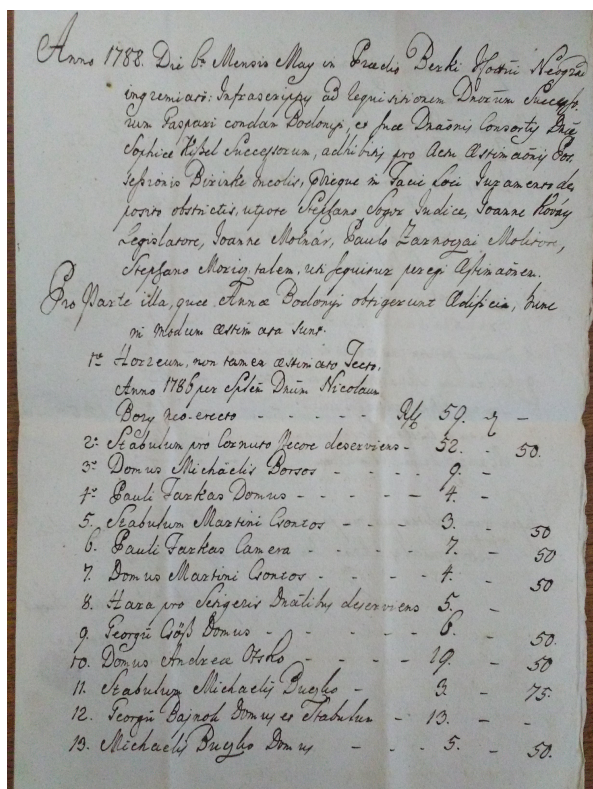 Anno 1788. Die 6ta Mensis May in Praedio Berki Cottui Neograd
ingremiato: Infrascriptus ad requisitionem Dnorum Successo-
rum Gaspari condam Bodonyi, et suae Dnaonis Consortis Dnae
Sophiae Successorum, adhibitis pro Actu Aestimaonis Pos-
sessionis Bizinke incolis, sub Juramento de-
posito obstrictis, utpote Stephano Judice, Joanne Kováy
Legislatore, Joanne Molnár, Paulo Zarnoczai Molitore,
Stephano talem, uti sequitur peregi Aestimaonem.
Pro Parte illa, quae Annae Bodonyi obtigerunt Aedificia, hunc
in modum aestimata sunt.
1o Horreum, non tamen aestimato Tecto,
Anno 1786 per Splem Dnum Nicolaum
Bory neo-erecto - - - - - - Rf 59. x -
2o Stabulum pro Cornuto Pecore deserviens - 52. - 50.
3o Domus Michaëlis Borsos - - - - 9. -
4o Pauli Farkas Domus - - - - - - 4. -
5. Stabulum Martini Csontos - - - 3. - 50
6. Pauli Farkas Camera - - - - 7. - 50
7. Domus Martini Csontos - - - - 4. - 50
8. Hara pro Setigeris Dnalibus deserviens 5. -
9. Georgii Csöß Domus - - - - - 6. - 50.
10. Domus Andrea Otsko - - - - - 19. - 50
11. Stabulum Michaëlis Buczko - 3. - 75.
12. Georgii Bajnok Domus et Stabulum - 13. - -
13. Michaëlis Buczko Domus - - - 5. - 50.